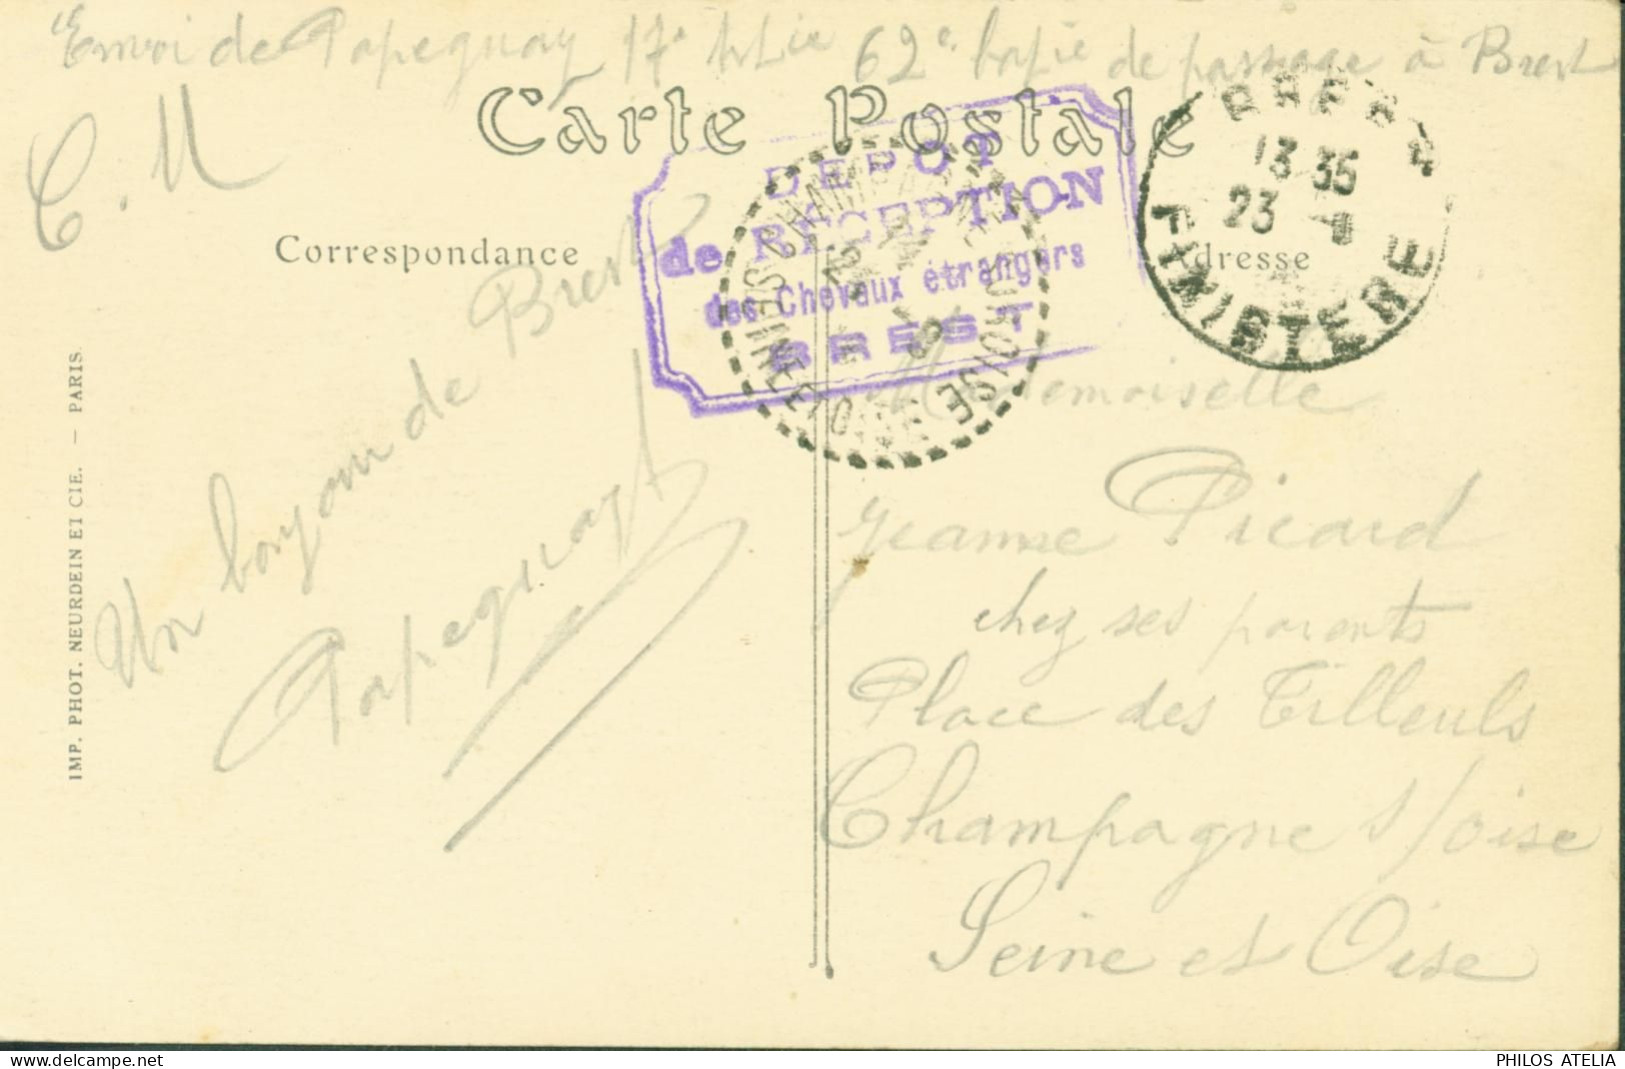 Envoi de Papeguay 17e Artie 62e batie de passage à Brest
C. M
Carte Postale
DEPOT
de RÉCEPTION
des Chevaux étrangers
BREST
BREST
13 35
23
FINISTERE
CHAMPAGNE SUR OISE
SEINE ET OISE
Correspondance
Adresse
Un bonjour de Brest
Papeguay
Mademoiselle
Jeanne Picard
chez ses parents
Place des Tilleuls
Champagne s/oise
Seine et Oise
IMP. PHOT. NEURDEIN ET CIE. — PARIS.
PHILOS ATELIA